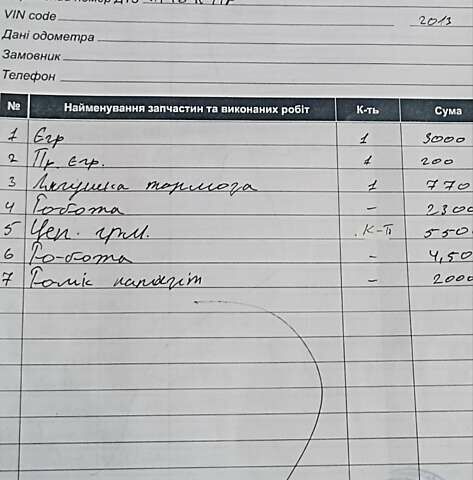 VIN code 2013
Дані одометра
Замовник
Телефон
№ Найменування запчастин та виконаних робіт К-ть Сума
1 Єгр 1 3000
2 Пр. Єгр. 1 200
3 тормоза 1 770
4 Робота - 2300
5 Цеп. грм. К-т 550
6 Ро-бота - 4,50
7 - 2000